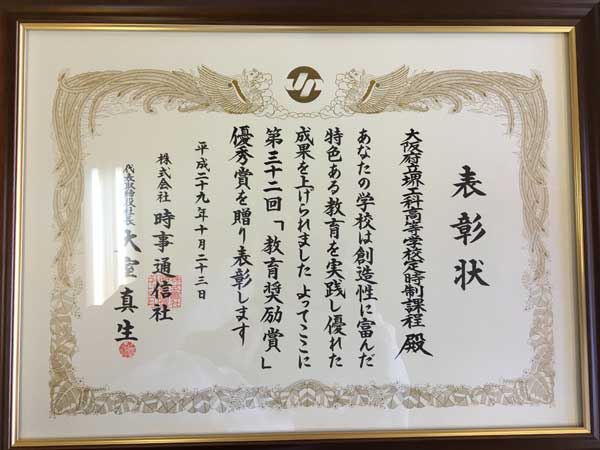 表彰状
大阪府立堺工科高等学校定時制課程 殿
あなたの学校は創造性に富んだ
特色ある教育を実践し優れた
成果を上げられました よってここに
第三十二回「教育奨励賞」
優秀賞を贈り表彰します
平成二十九年十月二十三日
株式会社 時事通信社
代表取締役社長 大室真生